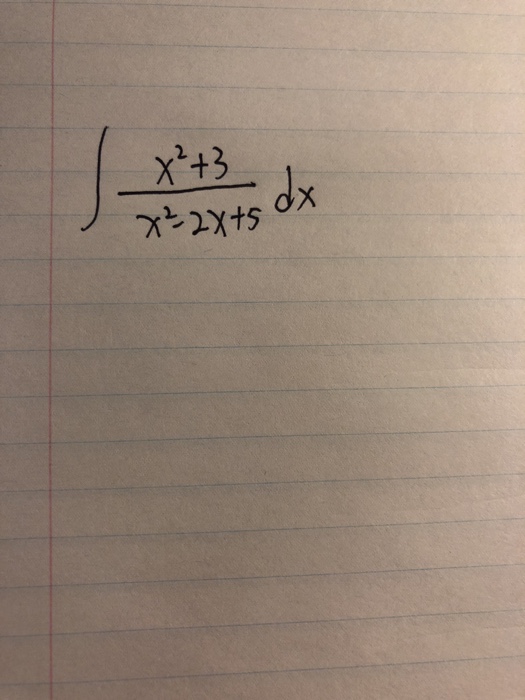 ∫ x²+3 / x²-2x+5 dx